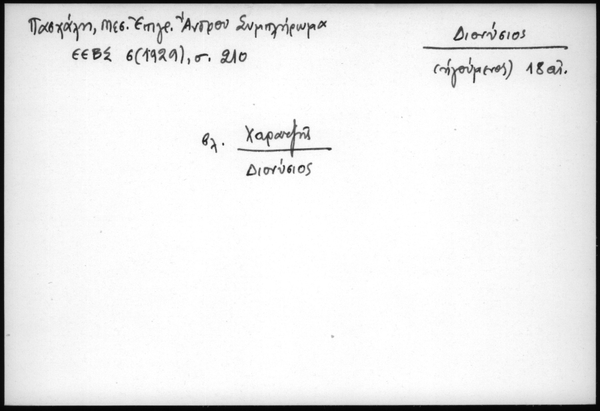 Πασχάλη, Μεσ. Ἐπιγρ. Ἄνδρου Συμπλήρωμα
ΕΕΒΣ 6(1929), σ. 210
Διονύσιος
(ἡγούμενος) 18 αἰ.
βλ.
Διονύσιος